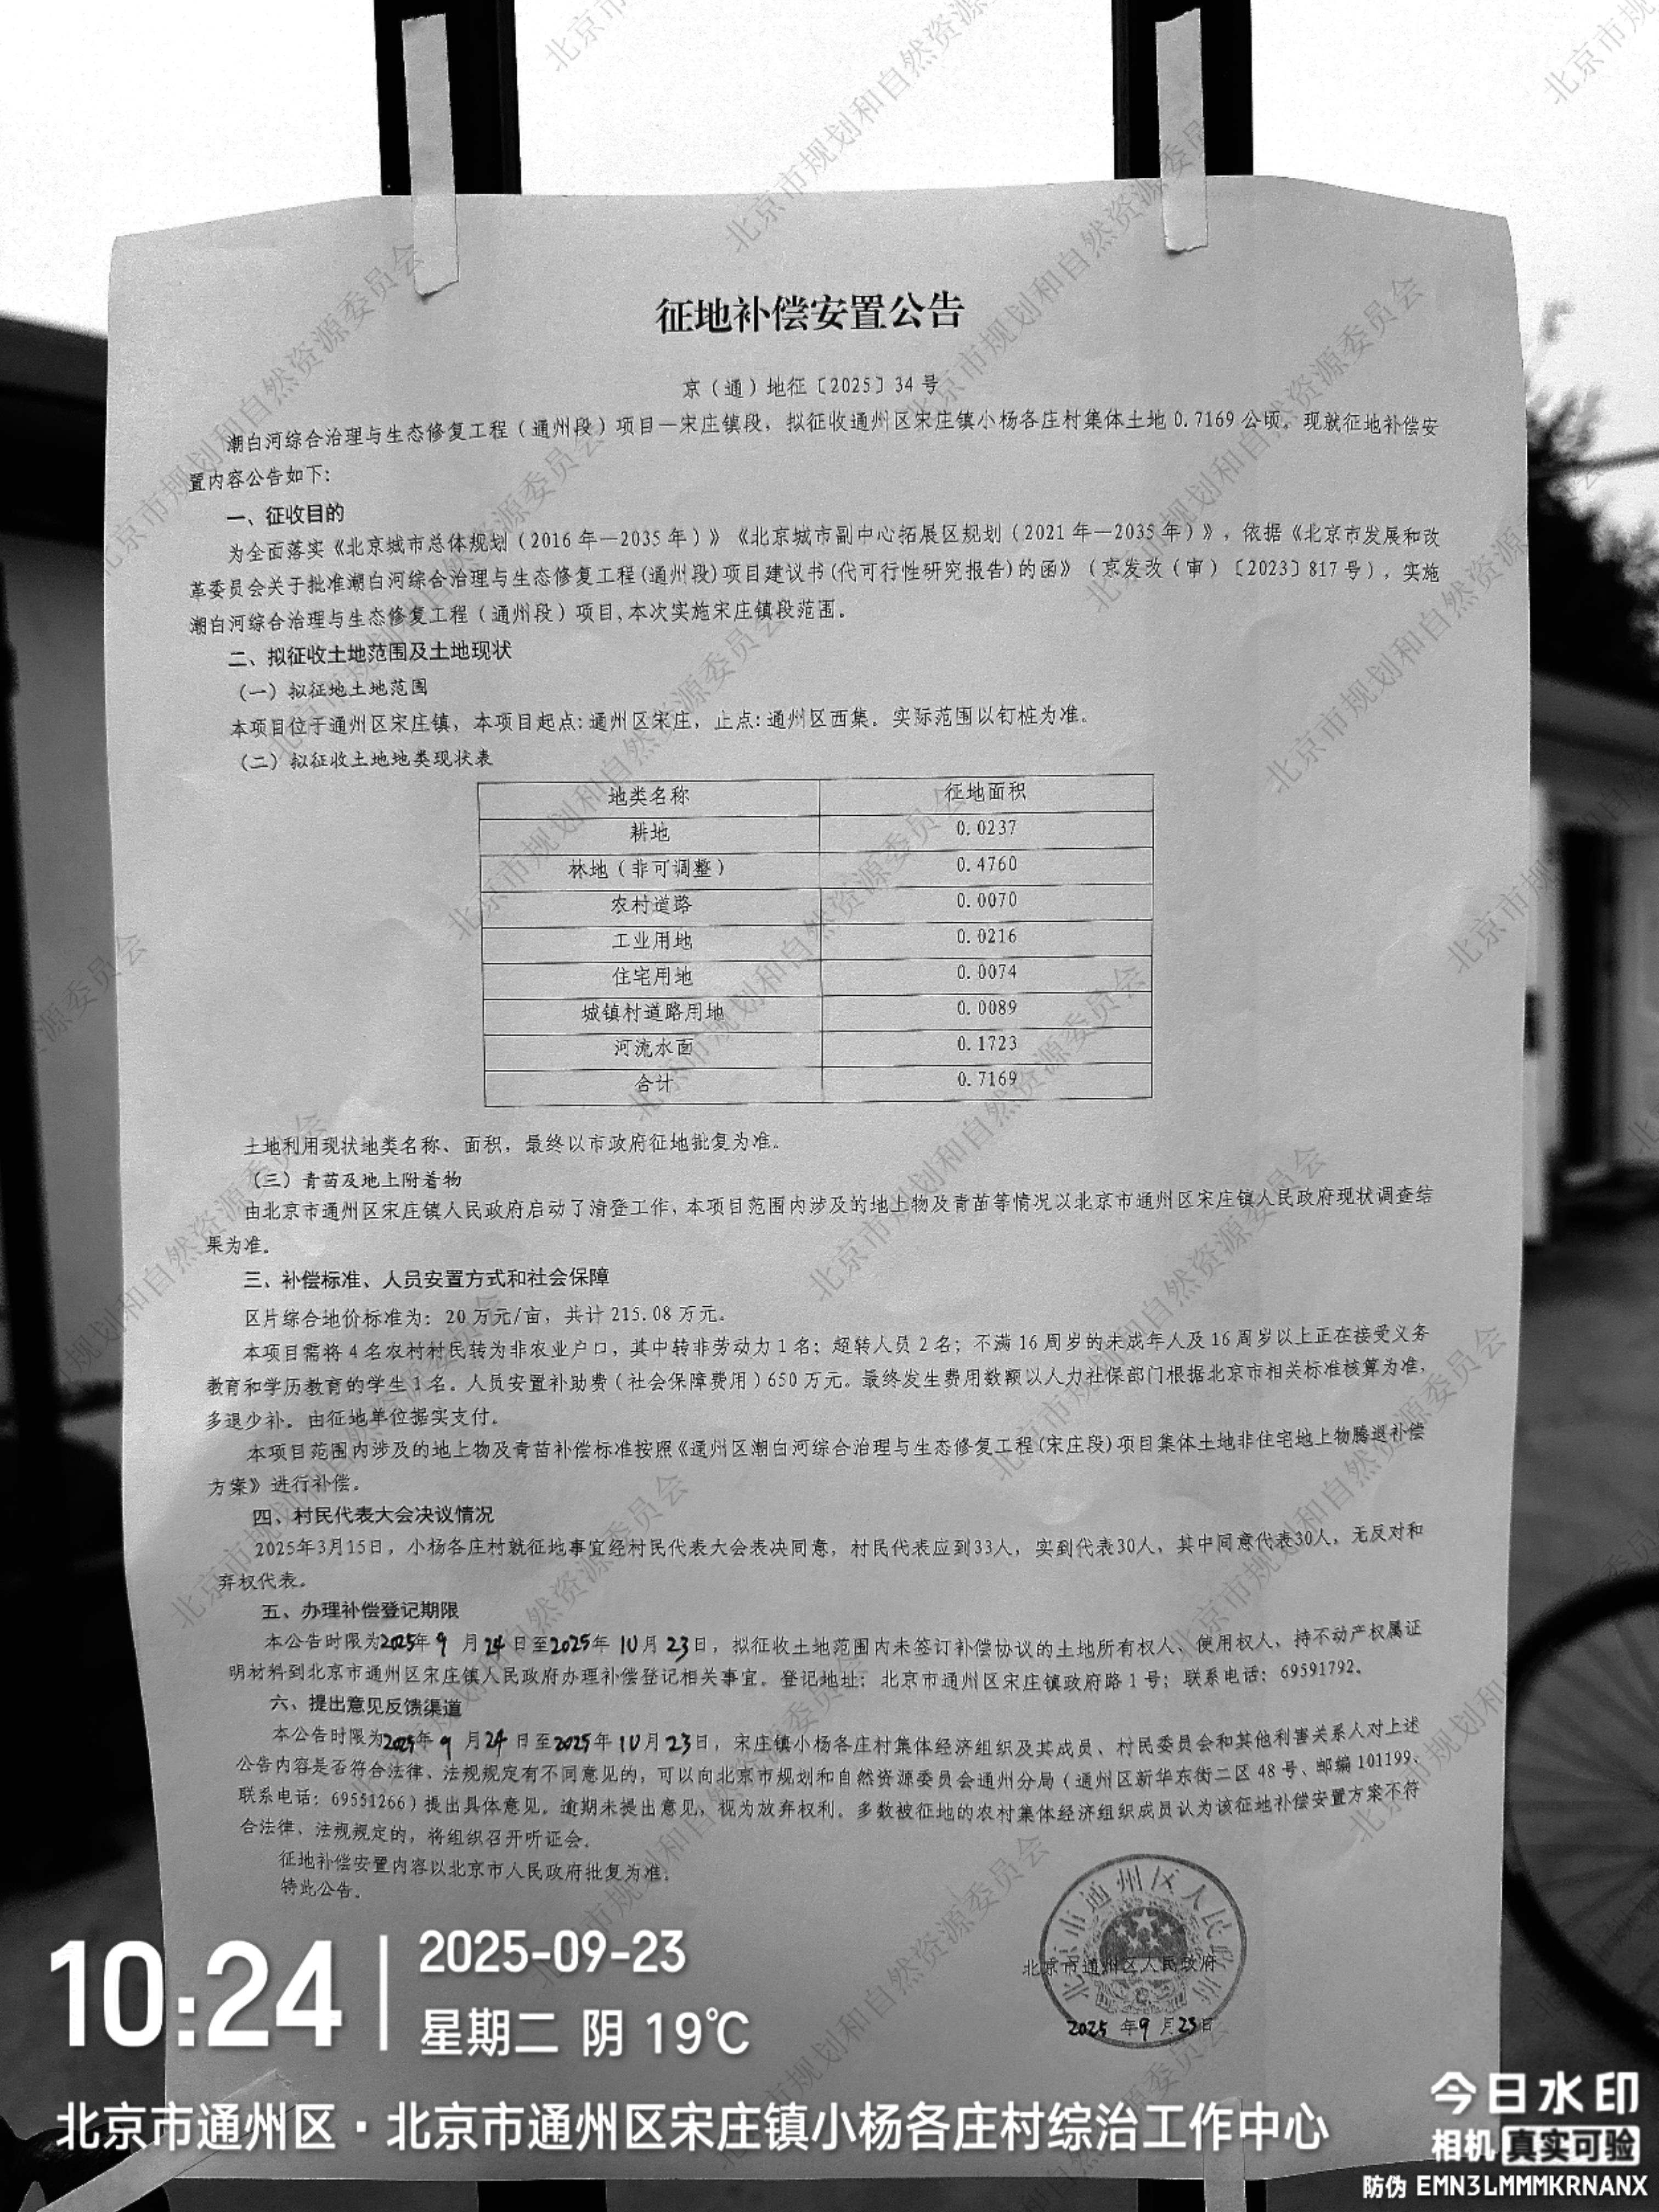 征地补偿安置公告
京（通）地征〔2025〕34 号
潮白河综合治理与生态修复工程（通州段）项目—宋庄镇段，拟征收通州区宋庄镇小杨各庄村集体土地 0.7169 公顷。现就征地补偿安
置内容公告如下：
一、征收目的
为全面落实《北京城市总体规划（2016 年—2035 年）》《北京城市副中心拓展区规划（2021 年—2035 年）》，依据《北京市发展和改
革委员会关于批准潮白河综合治理与生态修复工程(通州段)项目建议书(代可行性研究报告)的函》（京发改（审）〔2023〕817 号），实施
潮白河综合治理与生态修复工程（通州段）项目,本次实施宋庄镇段范围。
二、拟征收土地范围及土地现状
（一）拟征地土地范围
本项目位于通州区宋庄镇，本项目起点：通州区宋庄，止点：通州区西集。实际范围以钉桩为准。
（二）拟征收土地地类现状表
地类名称 征地面积
耕地 0.0237
林地（非可调整） 0.4760
农村道路 0.0070
工业用地 0.0216
住宅用地 0.0074
城镇村道路用地 0.0089
河流水面 0.1723
合计 0.7169
土地利用现状地类名称、面积，最终以市政府征地批复为准。
（三）青苗及地上附着物
由北京市通州区宋庄镇人民政府启动了清登工作,本项目范围内涉及的地上物及青苗等情况以北京市通州区宋庄镇人民政府现状调查结
果为准。
三、补偿标准、人员安置方式和社会保障
区片综合地价标准为：20 万元/亩，共计 215.08 万元。
本项目需将 4 名农村村民转为非农业户口，其中转非劳动力 1 名；超转人员 2 名；不满 16 周岁的未成年人及 16 周岁以上正在接受义务
教育和学历教育的学生 1 名。人员安置补助费（社会保障费用）650 万元。最终发生费用数额以人力社保部门根据北京市相关标准核算为准，
多退少补。由征地单位据实支付。
本项目范围内涉及的地上物及青苗补偿标准按照《通州区潮白河综合治理与生态修复工程(宋庄段)项目集体土地非住宅地上物腾退补偿
方案》进行补偿。
四、村民代表大会决议情况
2025年3月15日，小杨各庄村就征地事宜经村民代表大会表决同意，村民代表应到33人，实到代表30人，其中同意代表30人，无反对和
弃权代表。
五、办理补偿登记期限
本公告时限为2025年 9 月 24 日至2025年 10 月 23 日，拟征收土地范围内未签订补偿协议的土地所有权人、使用权人，持不动产权属证
明材料到北京市通州区宋庄镇人民政府办理补偿登记相关事宜。登记地址：北京市通州区宋庄镇政府路 1 号；联系电话：69591792。
六、提出意见反馈渠道
本公告时限为2025年 9 月 24 日至2025年 10 月 23 日，宋庄镇小杨各庄村集体经济组织及其成员、村民委员会和其他利害关系人对上述
公告内容是否符合法律、法规规定有不同意见的，可以向北京市规划和自然资源委员会通州分局（通州区新华东街二区 48 号、邮编 101199、
联系电话：69551266）提出具体意见。逾期未提出意见，视为放弃权利。多数被征地的农村集体经济组织成员认为该征地补偿安置方案不符
合法律、法规规定的，将组织召开听证会。
征地补偿安置内容以北京市人民政府批复为准。
特此公告。
北京市通州区人民政府
北京市通州区人民政府
2025 年 9 月 23 日
10:24
2025-09-23
星期二 阴 19℃
北京市通州区·北京市通州区宋庄镇小杨各庄村综治工作中心
今日水印
相机 真实可验
防伪 EMN3LMMMKRNANX
北京市规划和自然资源委员会